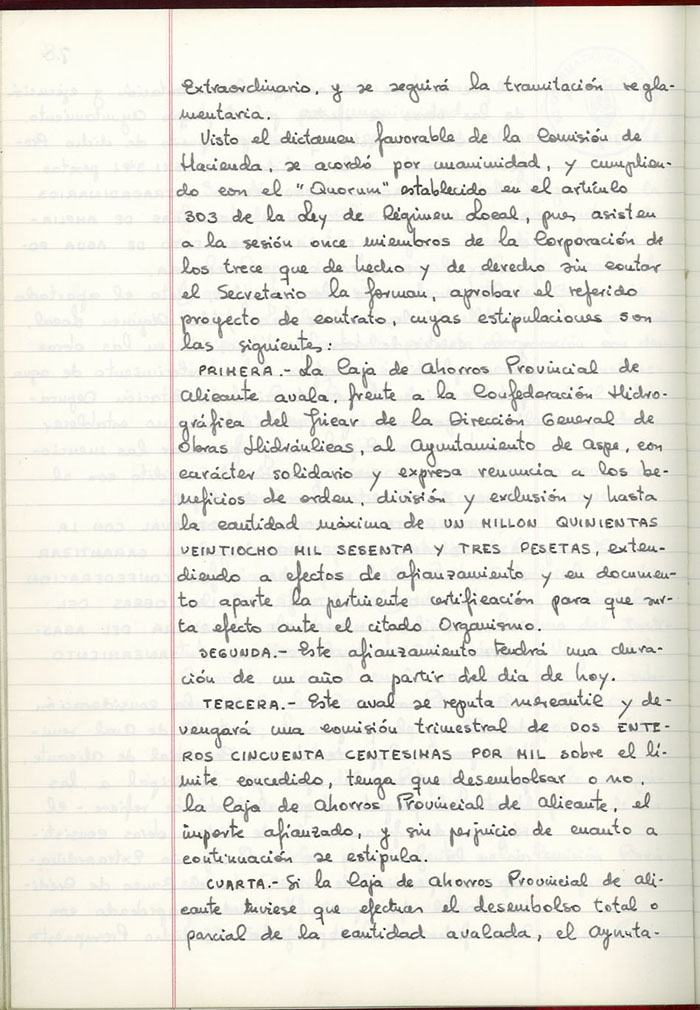 Extraordinario, y se seguirá la tramitación regla-
mentaria.
Visto el dictamen favorable de la Comisión de
Hacienda, se acordó por unanimidad, y cumplien-
do con el "Quorum" establecido en el artículo
303 de la Ley de Régimen Local, pues asisten
a la sesión once miembros de la Corporación de
los trece que de hecho y de derecho sin contar
el Secretario la forman, aprobar el referido
proyecto de contrato, cuyas estipulaciones son
las siguientes:
PRIMERA.- La Caja de Ahorros Provincial de
Alicante avala, frente a la Confederación Hidro-
gráfica del Júcar de la Dirección General de
Obras Hidráulicas, al Ayuntamiento de Aspe, con
carácter solidario y expresa renuncia a los be-
neficios de orden, división y exclusión y hasta
la cantidad máxima de UN MILLON QUINIENTAS
VEINTIOCHO MIL SESENTA Y TRES PESETAS, exten-
diendo a efectos de afianzamiento y en documen-
to aparte la pertinente certificación para que sur-
ta efecto ante el citado Organismo.
SEGUNDA.- Este afianzamiento tendrá una dura-
ción de un año a partir del dia de hoy.
TERCERA.- Este aval se reputa mercantil y de-
vengará una comisión trimestral de DOS ENTE-
ROS CINCUENTA CENTESIMAS POR MIL sobre el lí-
mite concedido, tenga que desembolsar o no,
la Caja de Ahorros Provincial de Alicante, el
importe afianzado, y sin perjuicio de cuanto a
continuación se estipula.
CUARTA.- Si la Caja de Ahorros Provincial de Ali-
cante tuviese que efectuar el desembolso total o
parcial de la cantidad avalada, el Ayunta-